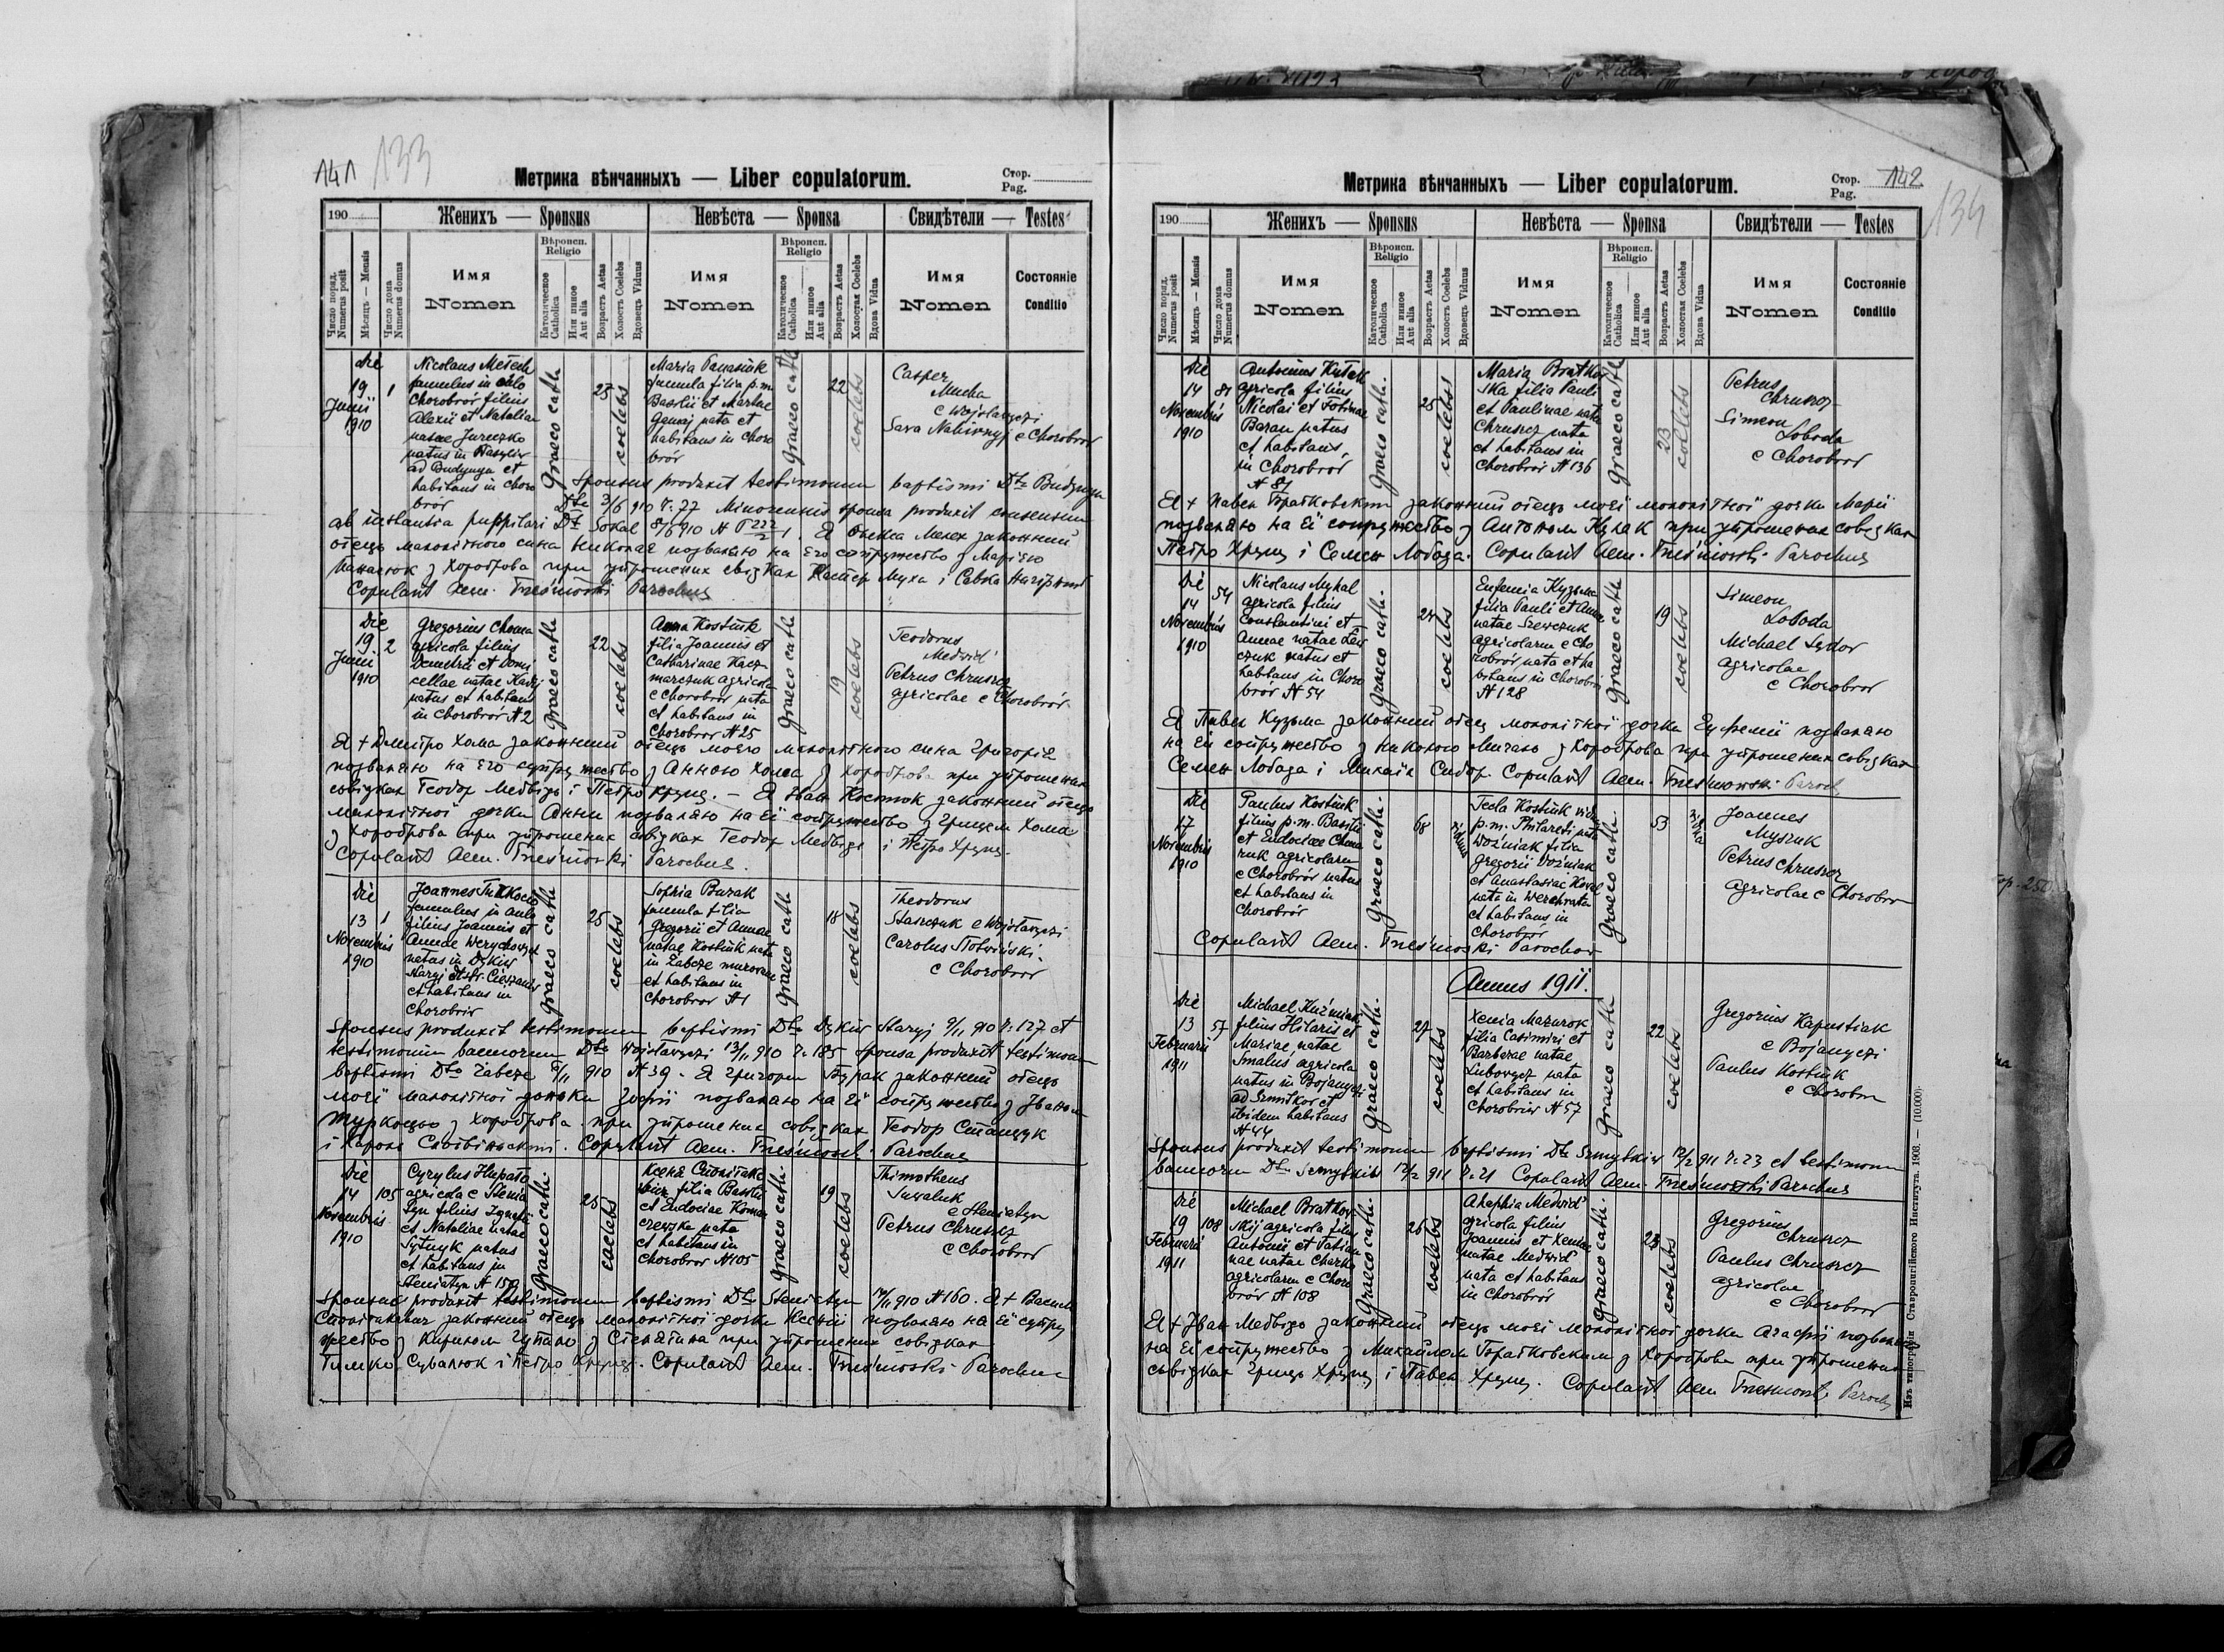 141 133
Метрика вѣнчанныхъ — Liber copulatorum.
Стор.
Pag.
190
Женихъ — Sponsus
Невѣста — Sponsa
Свидѣтели — Testes
Число поряд.
Numerus posit
Мѣсяцъ — Mensis
Число дома
Numerus domus
Имя
Nomen
Вѣроисп.
Religio
Католическое
Catholica
Или инное
Aut alia
Возрастъ Aetas
Холостъ Coelebs
Вдовець Viduus
Имя
Nomen
Вѣроисп.
Religio
Католическое
Catholica
Или инное
Aut alia
Возрастъ Aetas
Холостая Coelebs
Вдова Vidua
Имя
Nomen
Состояніе
Conditio
Die
19
Junii
1910
1
Nicolaus
famulus in
Chorobrór filius
Alexii et Nataliae
natae Jureczko
natus in
ad Budynyn et
habitans in Choro
brór
Graeco cath
25
coelebs
Maria Panasiuk
famula filia p.m.
Basilii et Marthae
nata et
habitans in Choro
brór
Graeco cath
22
coelebs
Casper
Mucha
e Wojsławyczi
Sava e Chorobrór
Sponsus produxit testimonium baptismi Dto Budynyn
Dto 3/6 910 N. 77 Minorennis sponsa produxit consensum
ab instantia puppilari Dto Sokal 8/6 910
отець малолітного сина Николае позваляю на єго сопружество з Марією
Панасюк з Хороброва при упрошених свідках Каспер Муха і Савка
Copulavit Aem. Trześniowski Parochus
Die
19
Junii
1910
2
Gregorius Choma
agricola filius
Demetrii et Domi
cellae natae
natus et habitans
in Chorobrór N 2
Graeco cath
22
coelebs
Anna Kostiuk
filia Joannis et
Catharinae Kacz
marczuk agricola
e Chorobrór nata
et habitans in
Chorobrór N 25
Graeco cath
19
coelebs
Teodorus
Medwid
Petrus Chruszcz
agricolae e Chorobrór
Я + Дмитро Хома законний отець моєго малолітного сина Григорія
позваляю на єго супружество з Анною Хома з Хороброва при упрошених
совідках Теодор Медвідь і Петро Хрущ. — Я Іван Костюк законний отець
малолітної дочки Анни позваляю на єї сопружество з Грицем Хома
з Хороброва при упрошених свідках Теодор Медвідь і Петро Хрущ.
Copulavit Aem. Trześniowski Parochus.
Die
13
Novembris
1910
1
Joannes
famulus in aula
filius Joannis et
Annae
natus in Dykiw
Staryj
et habitans in
Chorobrór
Graeco cath
25
coelebs
Sophia Burak
famula filia
Gregorii et Annae
natae Kostiuk nata
in Zabcze murowane
et habitans in
Chorobrór N 1
Graeco cath
18
coelebs
Theodorus
Staszczuk e Wojsławyczi
Carolus
e Chorobrór
Sponsus produxit testimonium baptismi Dto Dykiw Staryj 9/11 910 N. 127 et
testimonium bannorum Dto Wojsławyczi 13/11 910 N. 185 sponsa produxit testimonium
baptismi Dto Zabcze 6/11 910 N 39. Я Григорій Бурак законний отець
моєї малолітної доньки Зофії позваляю на єї сопружество з Іваном
з Хороброва при упрошених совідках Теодор Стащук
і Кароль. Copulavit Aem. Trześniowski Parochus
Die
14
Novembris
1910
105
Cyrylus Hupało
agricola e Stenia
tyn filius Ignatii
et Nataliae natae
Sytnyk natus
et habitans in
Steniatyn N 159
Graeco cath.
25
coelebs
filia Basilii
et Eudociae
nata
et habitans in
Chorobrór N 105
Graeco cath.
19
coelebs
Thimotheus
Suwaluk
e Steniatyn
Petrus Chruszcz
e Chorobrór
Sponsus produxit testimonium baptismi Dto Steniatyn 910 N 160.
законний отець малолітної дочки Ксенії позваляю на єї супру
жество з Кирилом Гупало з Стенятина при упрошених совідках
Тимко Сувалюк і Петро Хрущ. Copulavit Aem. Trześniowski Parochus
Метрика вѣнчанныхъ — Liber copulatorum.
Стор.
Pag.
142
134
190
Женихъ — Sponsus
Невѣста — Sponsa
Свидѣтели — Testes
Число поряд.
Numerus posit
Мѣсяцъ — Mensis
Число дома
Numerus domus
Имя
Nomen
Вѣроисп.
Religio
Католическое
Catholica
Или инное
Aut alia
Возрастъ Aetas
Холостъ Coelebs
Вдовець Viduus
Имя
Nomen
Вѣроисп.
Religio
Католическое
Catholica
Или инное
Aut alia
Возрастъ Aetas
Холостая Coelebs
Вдова Vidua
Имя
Nomen
Состояніе
Conditio
Die
14
Novembris
1910
81
Antonius Kułak
agricola filius
Nicolai et Fotinae
Baran natus
et habitans
in Chorobrór
N 81
Graeco cath.
25
coelebs
Maria Bratkow
ska filia Pauli
et Paulinae natae
Chruszcz nata
et habitans in
Chorobrór N 136
Graeco cath
23
coelebs
Petrus
Chruszcz
Simeon
Łoboda
e Chorobrór
Я + Павел Братковский законний отець моєї малолітної дочки Марії
позваляю на єї сопружество з Антоном Кулак при упрошених совідках
Петро Хрущ і Семен Лобода. Copulavit Aem. Trześniowski Parochus
Die
14
Novembris
1910
54
Nicolaus Myhal
agricola filius
Constantini et
Annae natae Lew
czuk natus et
habitans in Choro
brór N 54
Graeco cath.
24
coelebs
Eufemia Kuzma
filia Pauli et Annae
natae Szewczuk
agricolarum e Cho
robrór nata et ha
bitans in Chorobrór
N 128
Graeco cath
19
coelebs
Simeon
Łoboda
Michael Sydor
agricolae
e Chorobrór
Я Павел Кузьма законний отець малолітної дочки Еуфемії позваляю
на єї сопружество з Николою Мигалю з Хороброва при упрошених совідках
Семен Лобода і Михаїл Сидор. Copulavit Aem. Trześniowski Paroch
Die
17
Novembris
1910
Paulus Kostiuk
filius p.m. Basilii
et Eudociae
agricolarum
e Chorobrór natus
et habitans in
Chorobrór
Graeco cath.
68
viduus
Tecla Kostiuk vidua
p.m. Philareti nata
Woźniak filia
Gregorii Woźniak
et Anastasiae Kowal
nata in Werchrata
et habitans in
Chorobrór
Graeco cath.
53
vidua
Joannes
Myszuk
Petrus Chruszcz
agricolae e Chorobrór
Copulavit Aem. Trześniowski Parochus
Annus 1911.
Die
13
Februarii
1911
57
Michael Kuźmiak
filius Hilarii et
Mariae natae
Smaluś agricola
natus in Bojanyczi
ad
ibidem habitans
N 44
Graeco cath.
27
coelebs
Xenia Mazurok
filia Casimiri et
Barbarae natae
nata
et habitans in
Chorobrów N 57
Graeco cath
22
coelebs
Gregorius Kapustiak
e Bojanyczi
Paulus Kostiuk
e Chorobrór
Sponsus produxit testimonium baptismi Dto Szmytków 12/2 911 N. 23 et testimonium
bannorum Dto Szmytków 12/2 911 N. 21 Copulavit Aem. Trześniowski Parochus
Die
19
Februarii
1911
108
Michael Bratkow
skij agricola filius
Antonii et Tatian
nae natae
agricolarum e Choro
brór N 108
Graeco cath.
26
coelebs
Ahaphia Medwid
agricola filius
Joannis et Xeniae
natae Medwid
nata et habitans
in Chorobrór
Graeco cath.
23
coelebs
Gregorius
Chruszcz
Paulus Chruszcz
agricolae
e Chorobrór
Я + Іван Медвідь законний отець моєї малолітної дочки Агафії позваляю
на єї сопружество з Михайлом Братковским з Хороброва при упрошених
совідках Гриць Хрущ і Павел Хрущ. Copulavit Aem Trześniowski Paroch
Изъ типографіи Ставропигійского Института. 1908. — (10.000).